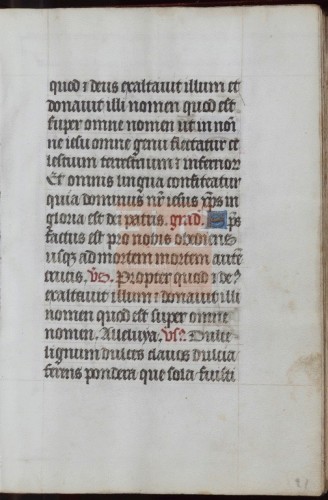 quod ⁊ deus exaltavit illum et
donavit illi nomen quod est
super omne nomen ut in noĩ
ne iesu omne genu flectatur ce
lestium terrestrium ⁊ infernor
Et omnis lingua confiteatur
quia dominus nr̄ iesus xp̄s in
gloria est dei patris. grad. xp̄s
factus est pro nobis obediens
usq; ad mortem mortem autē
crucis. v̄s. Propter quod ⁊ de9
exaltavit illum ⁊ donavit illi
nomen quod est super omne
nomen. Alleluya. vs̄. Dulce
lignum dulces clavos dulcia
ferens pondera que sola fuisti